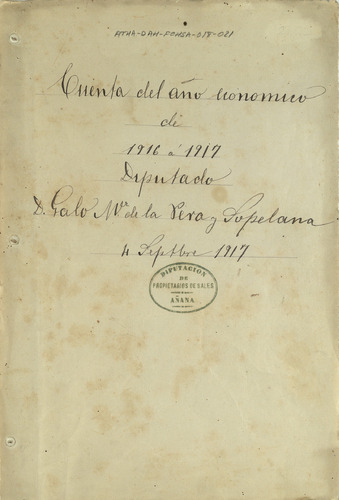 ATHA-DAH-FCMSA-018-021
Cuenta del año economico
de
1916 á 1917
Diputado
D. Galo Mª de la Pera y Sopelana
4 Septbre 1917
DIPUTACION
DE
PROPIETARIOS DE SALES
AÑANA